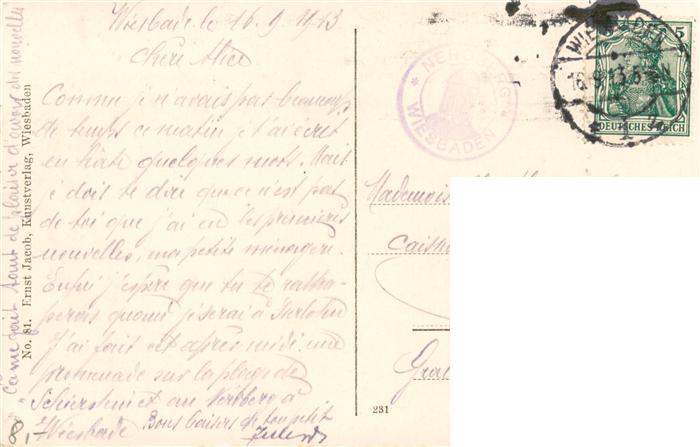 Wiesbade le 16.9.1913
Chère Alice
Comme je n'avais pas beaucoup
de temps ce matin je t'ai écrit
en hâte quelques mots. Mait
je dois te dire que ce n'est pas
de toi que j'ai eu les premières
nouvelles, ma petite ménagère.
Enfin j'espère que tu te rattra-
perais quand je serai à
J'ai fait cet après midi une
promenade sur la plage de
Schierstein et au Neroberg à
Wiesbade Bons baisers de ton petit
Ça me fait tant de plaisir d'avoir des nouvelles
No. 81. Ernst Jacob, Kunstverlag, Wiesbaden
8,
NEROBERG
WIESBADEN
WIESBADEN
16.9.13.
5
DEUTSCHES REICH
Mademois
Caiss
Gra
231